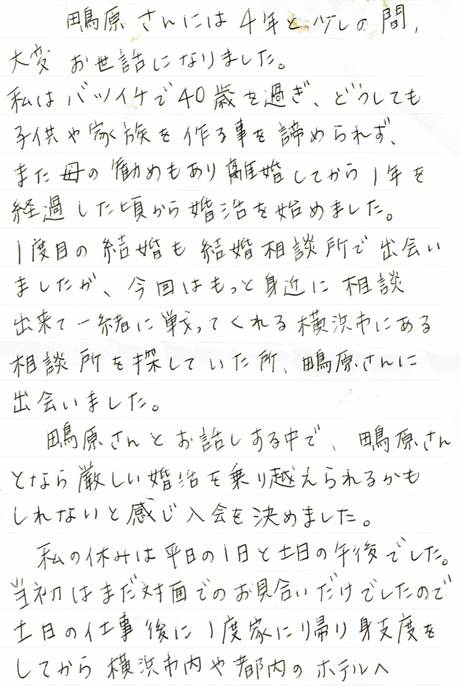 鴫原さんには4年と少しの間、
大変お世話になりました。
私はバツイチで40歳を過ぎ、どうしても
子供や家族を作る事を諦められず、
また母の勧めもあり離婚してから1年を
経過した頃から婚活を始めました。
1度目の結婚も結婚相談所で出会い
ましたが、今回はもっと身近に相談
出来て一緒に戦ってくれる横浜市にある
相談所を探していた所、鴫原さんに
出会いました。
鴫原さんとお話しする中で、鴫原さん
となら厳しい婚活を乗り越えられるかも
しれないと感じ入会を決めました。
私の休みは平日の1日と土日の午後でした。
当初はまだ対面でのお見合いだけでしたので
土日の仕事後に1度家に帰り身支度を
してから横浜市内や都内のホテルへ